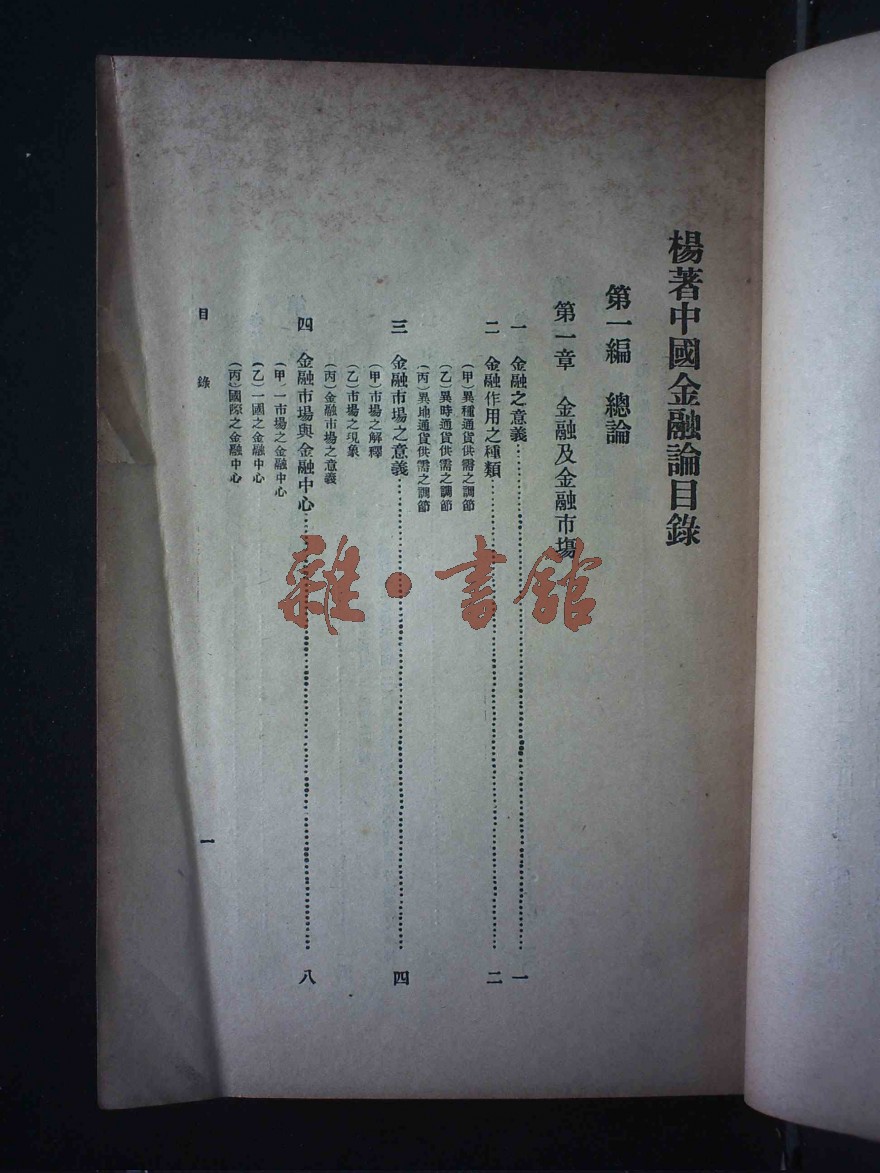 楊著中國金融論目錄
第一編　總論
第一章　金融及金融市場
一　金融之意義……一
二　金融作用之種類……二
（甲）異種通貨供需之調節
（乙）異時通貨供需之調節
（丙）異地通貨供需之調節
三　金融市場之意義……四
（甲）市場之解釋
（乙）市場之現象
（丙）金融市場之意義
四　金融市場與金融中心……八
（甲）一市場之金融中心
（乙）一國之金融中心
（丙）國際之金融中心
目錄
一
雜·書館